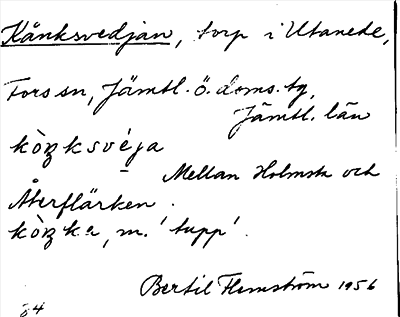 Kånksvedjan, torp i Utanede,
Fors sn, Jämtl. ö. doms. tg,
Jämtl. län
kòŋksvéja
Mellan Holmsta och
Återflärken.
kòŋka, m. 'tupp'.
Bertil Flemström 1956
54